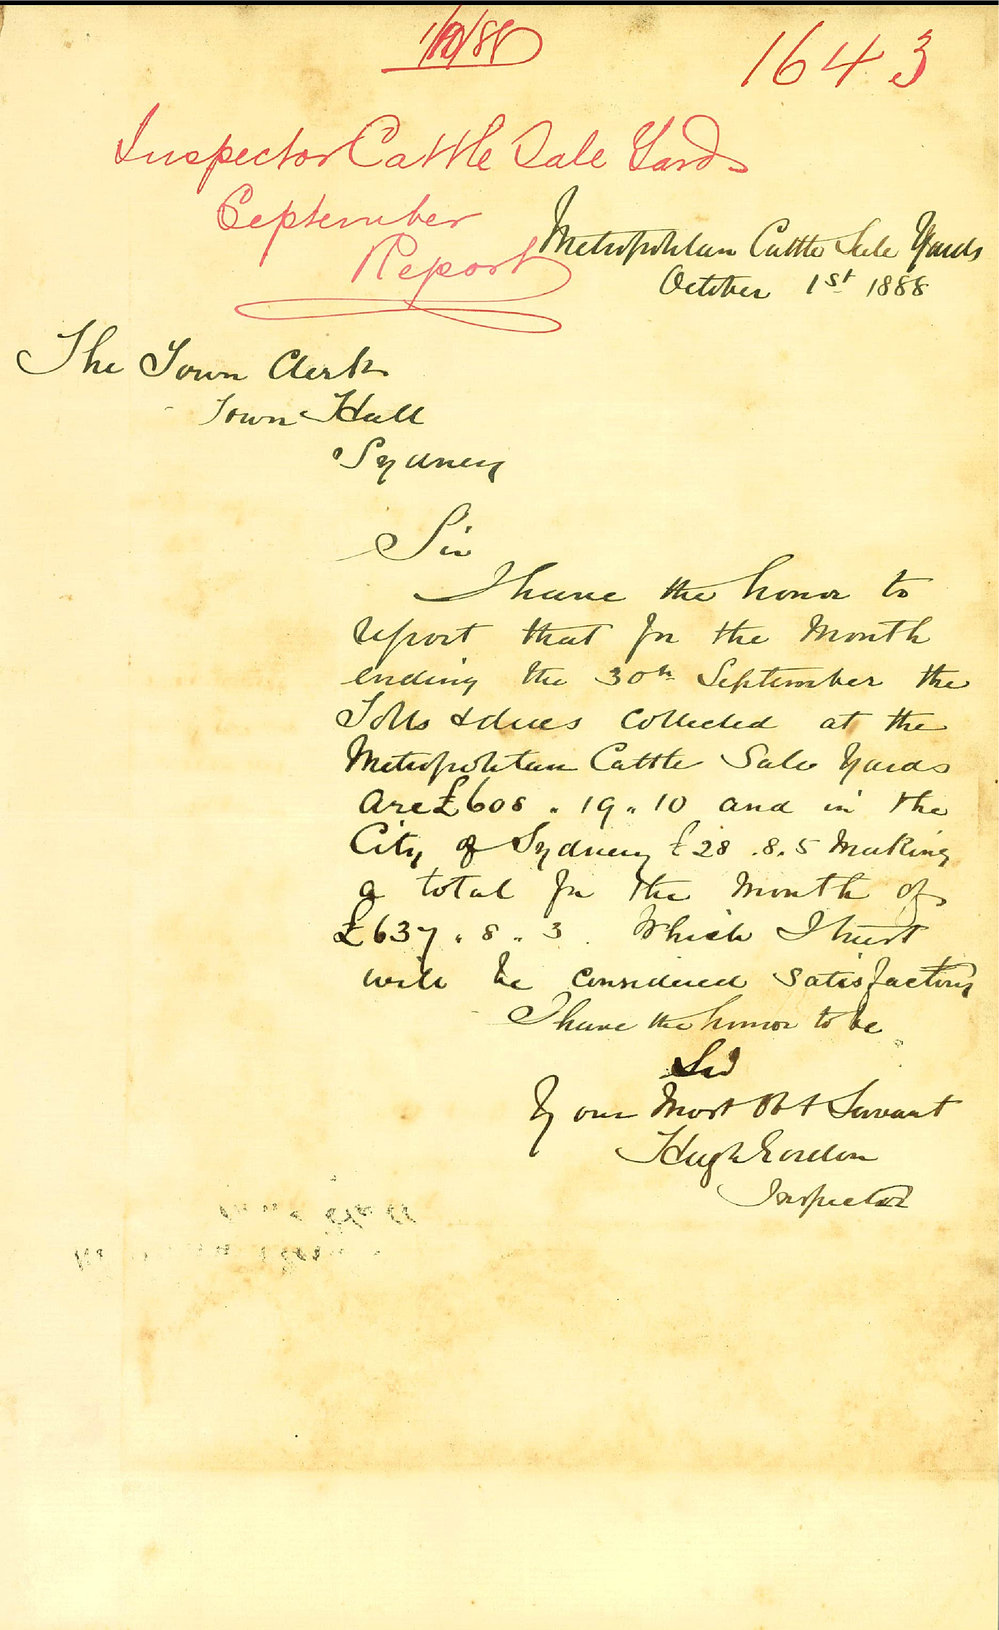 1/10/88
1643
Inspector Cattle Sale Yards
September
Report
Metropolitan Cattle Sale Yards
October 1st 1888
The Town Clerk
Town Hall
Sydney
Sir
I have the honor to
report that for the Month
ending the 30th September the
Tolls & dues Collected at the
Metropolitan Cattle Sale Yards
are £608.19.10 and in the
City of Sydney £28.8.5 Making
a total for the Month of
£637.8.3. Which I trust
will be considered satisfactory
I have the honor to be
Sir
Your Most Obt Servant
Hugh Gordon
Inspector